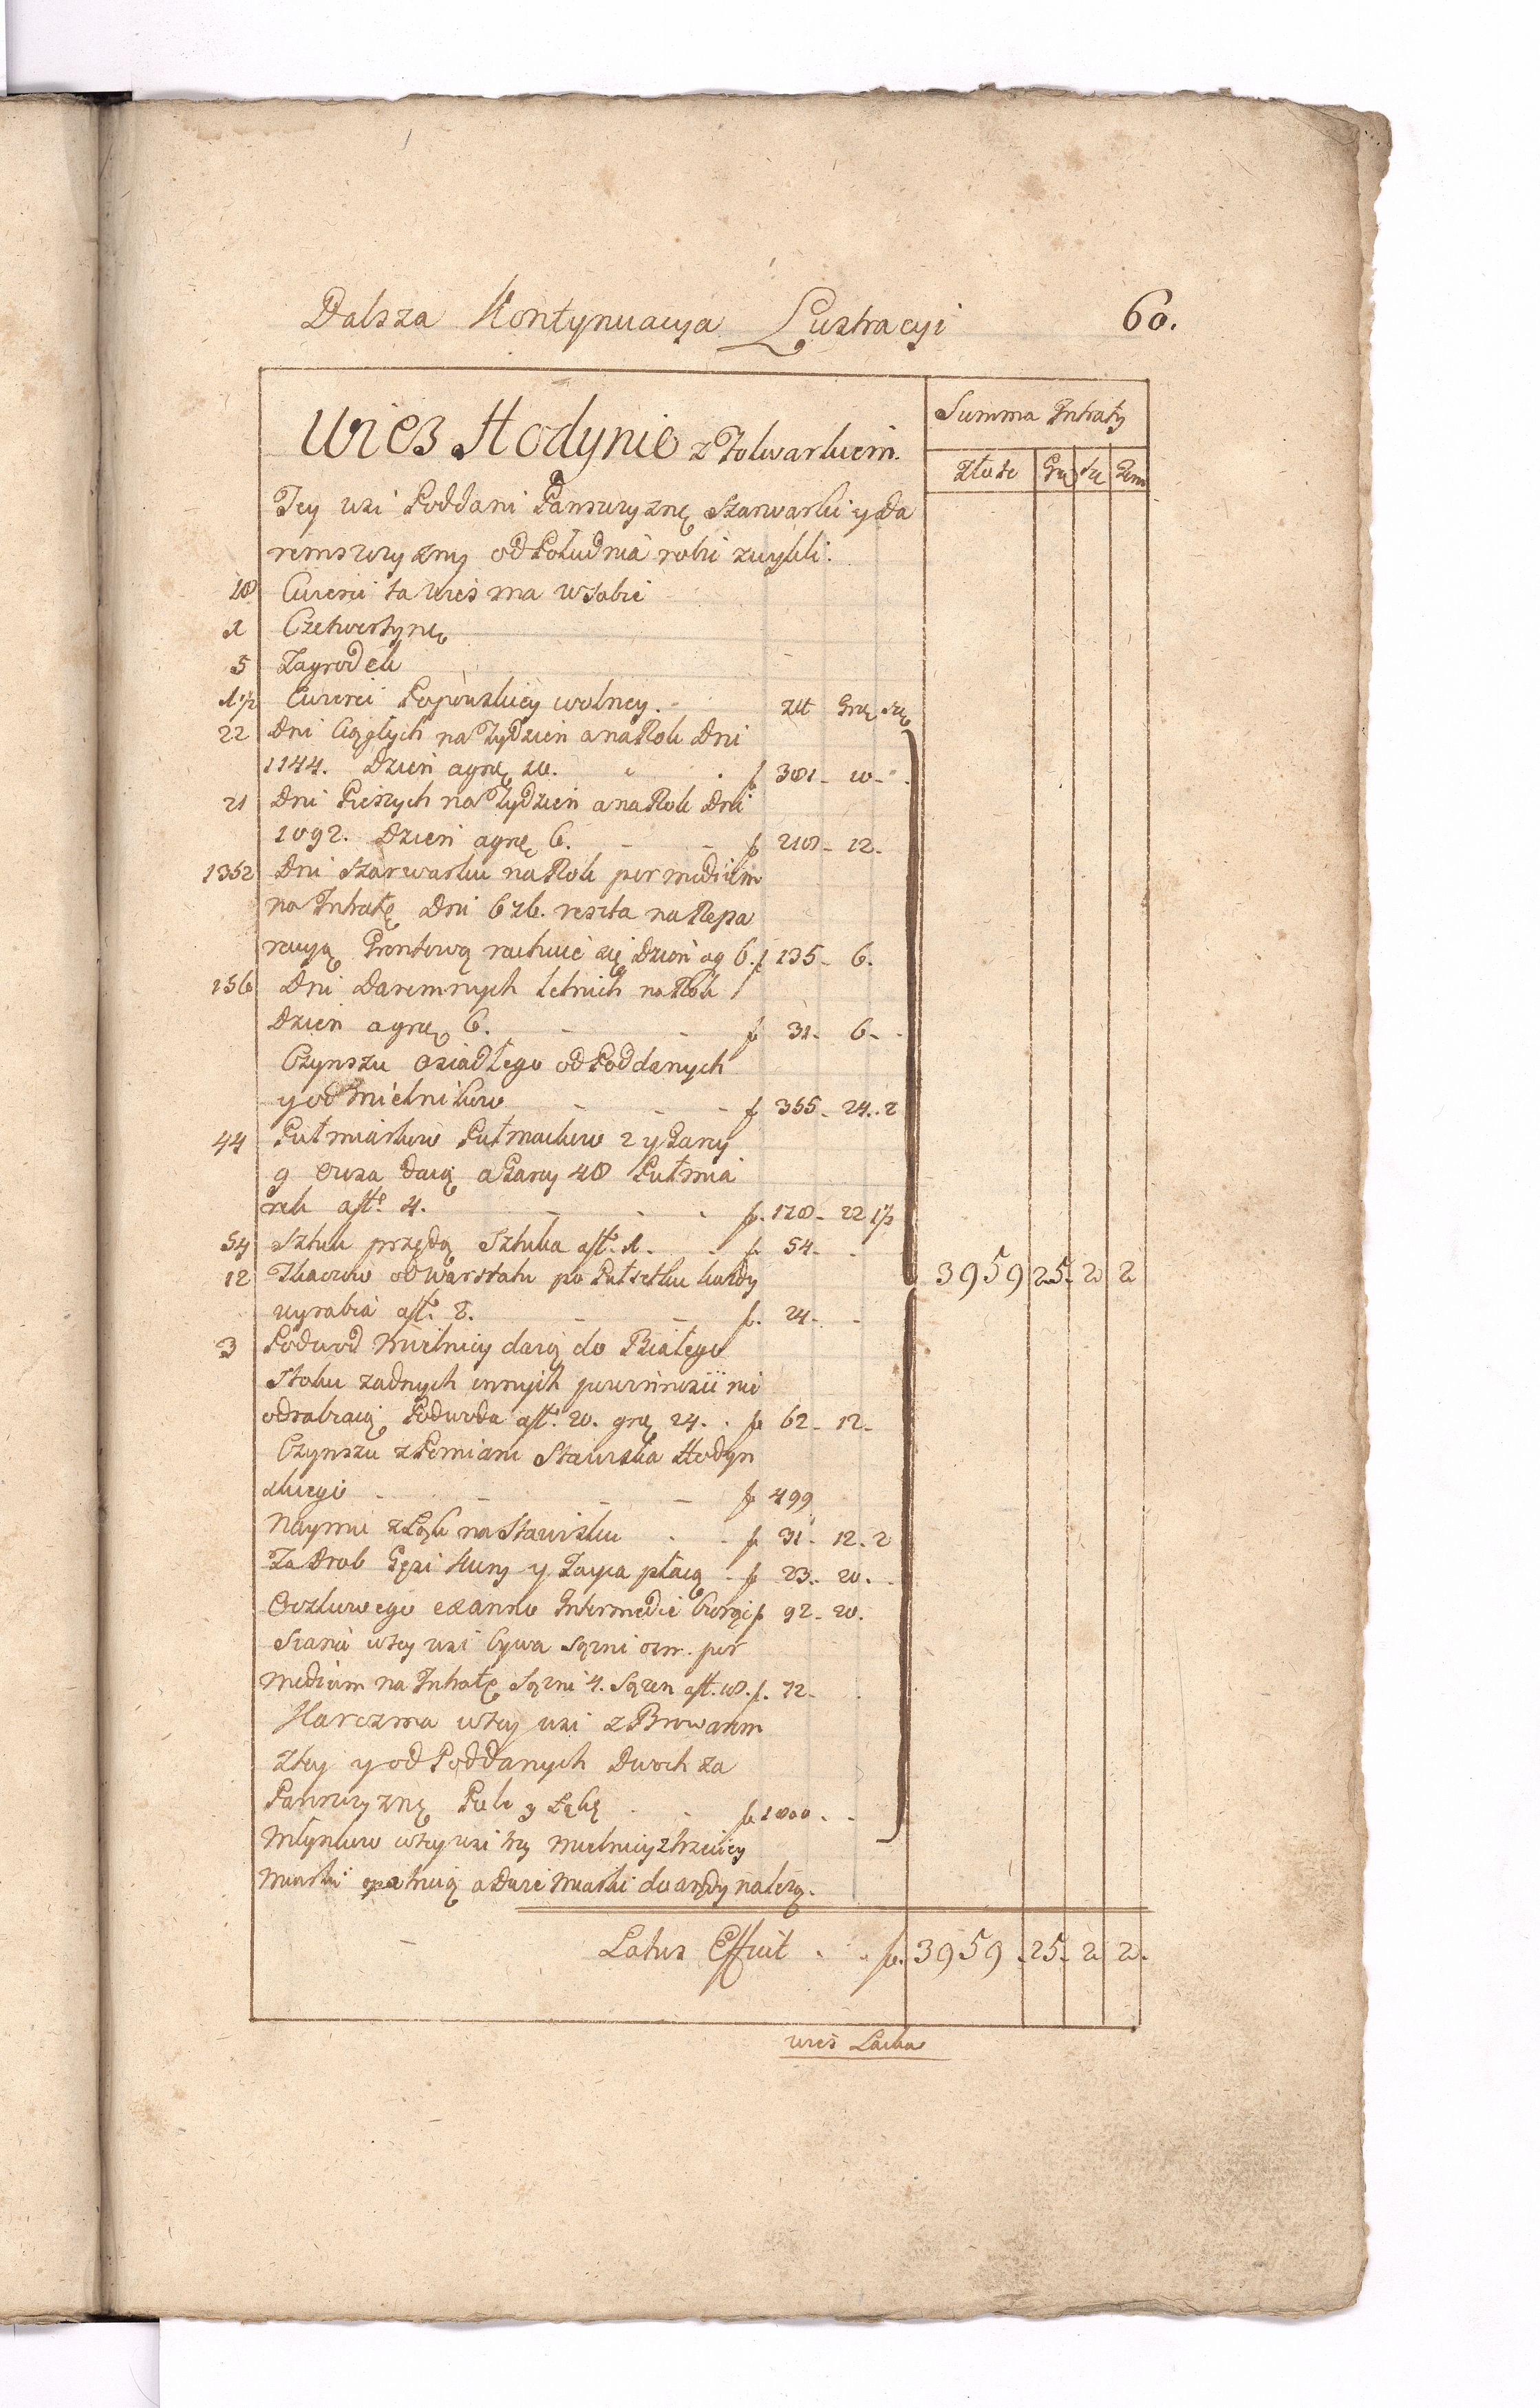 Dalsza Kontynuacya Lustracyi 60.
Wies Hodynie z Folwarkiem.
Summa Intraty
Złote Gro Sze Den
Tey wsi Poddani Panszczyznę Szarwarki y Da
remszczyzny od Południa robić zwykli.
18 Cwierci ta wies ma w sobie
1 Czetwertynę
5 Zagrodek
1 1/2 Cwierci Popowskiey wolney. Złt Gro Sze
22 Dni Ciągłych na Tydzien a na Rok Dni
1144. Dzien a gro 10. f 381 - 10 -
21 Dni Pieszych na Tydzien a na Rok Dni
1092. Dzien a gro 6. f 218 - 12 -
1352 Dni Szarwarku na Rok per medium
na Intratę Dni 676. reszta na Repa
racyą Grontową rachuie się Dzien ag 6. f 135 - 6.
156 Dni Daremnych letnich na Rok
Dzien a gro 6. f 31 - 6 -
Czynszu osiadłego od Poddanych
y od Mielnikow f 355 - 24. 2
44 Putmiarkow Putmackow 2 y Garcy
9 Owsa daią a Garcy 48 Putmia
rek a ft. 4. f. 178 - 22 1 1/2
54 Sztuk przędą Sztuka a ft. 1. f. 54 -
12 Tkaczow od Warstatu po Putsetku każdy
wyrabia a ft. 2. f. 24 -
3 Podwod Mielnicy daią do Białego
Stoku zadnych innych powinnosci nie
odrabiaią Podwoda a ft. 20. gro 24. f 62 - 12 -
Czynszu z Pomiaru Stawiska Hodyn
skiego f 499
Naymu z Łąk na Stawisku f 31 - 12. 2
Za Drob Gęsi Kury y Jayca płacą f 23 - 20.
Oczkowego ex anno Intermedie Czergi f 92 - 20.
Siana w tey wsi bywa Sązni osm. per
medium na Intratę Sązni 4. Sązen a ft. 18. f. 72 -
Karczma w tey wsi z Browarem
z tey y od Poddanych dwoch za
Panszczyznę Pole y Łąkę f 1800 -
Młynkow w tey wsi trzy Mielnicy z trzeciey
Miarki a dwie Miarki do arędy nalezą.
3959 25 - 2 2
Latus Efficit f. 3959 - 25 - 2 2.
wies Lacka